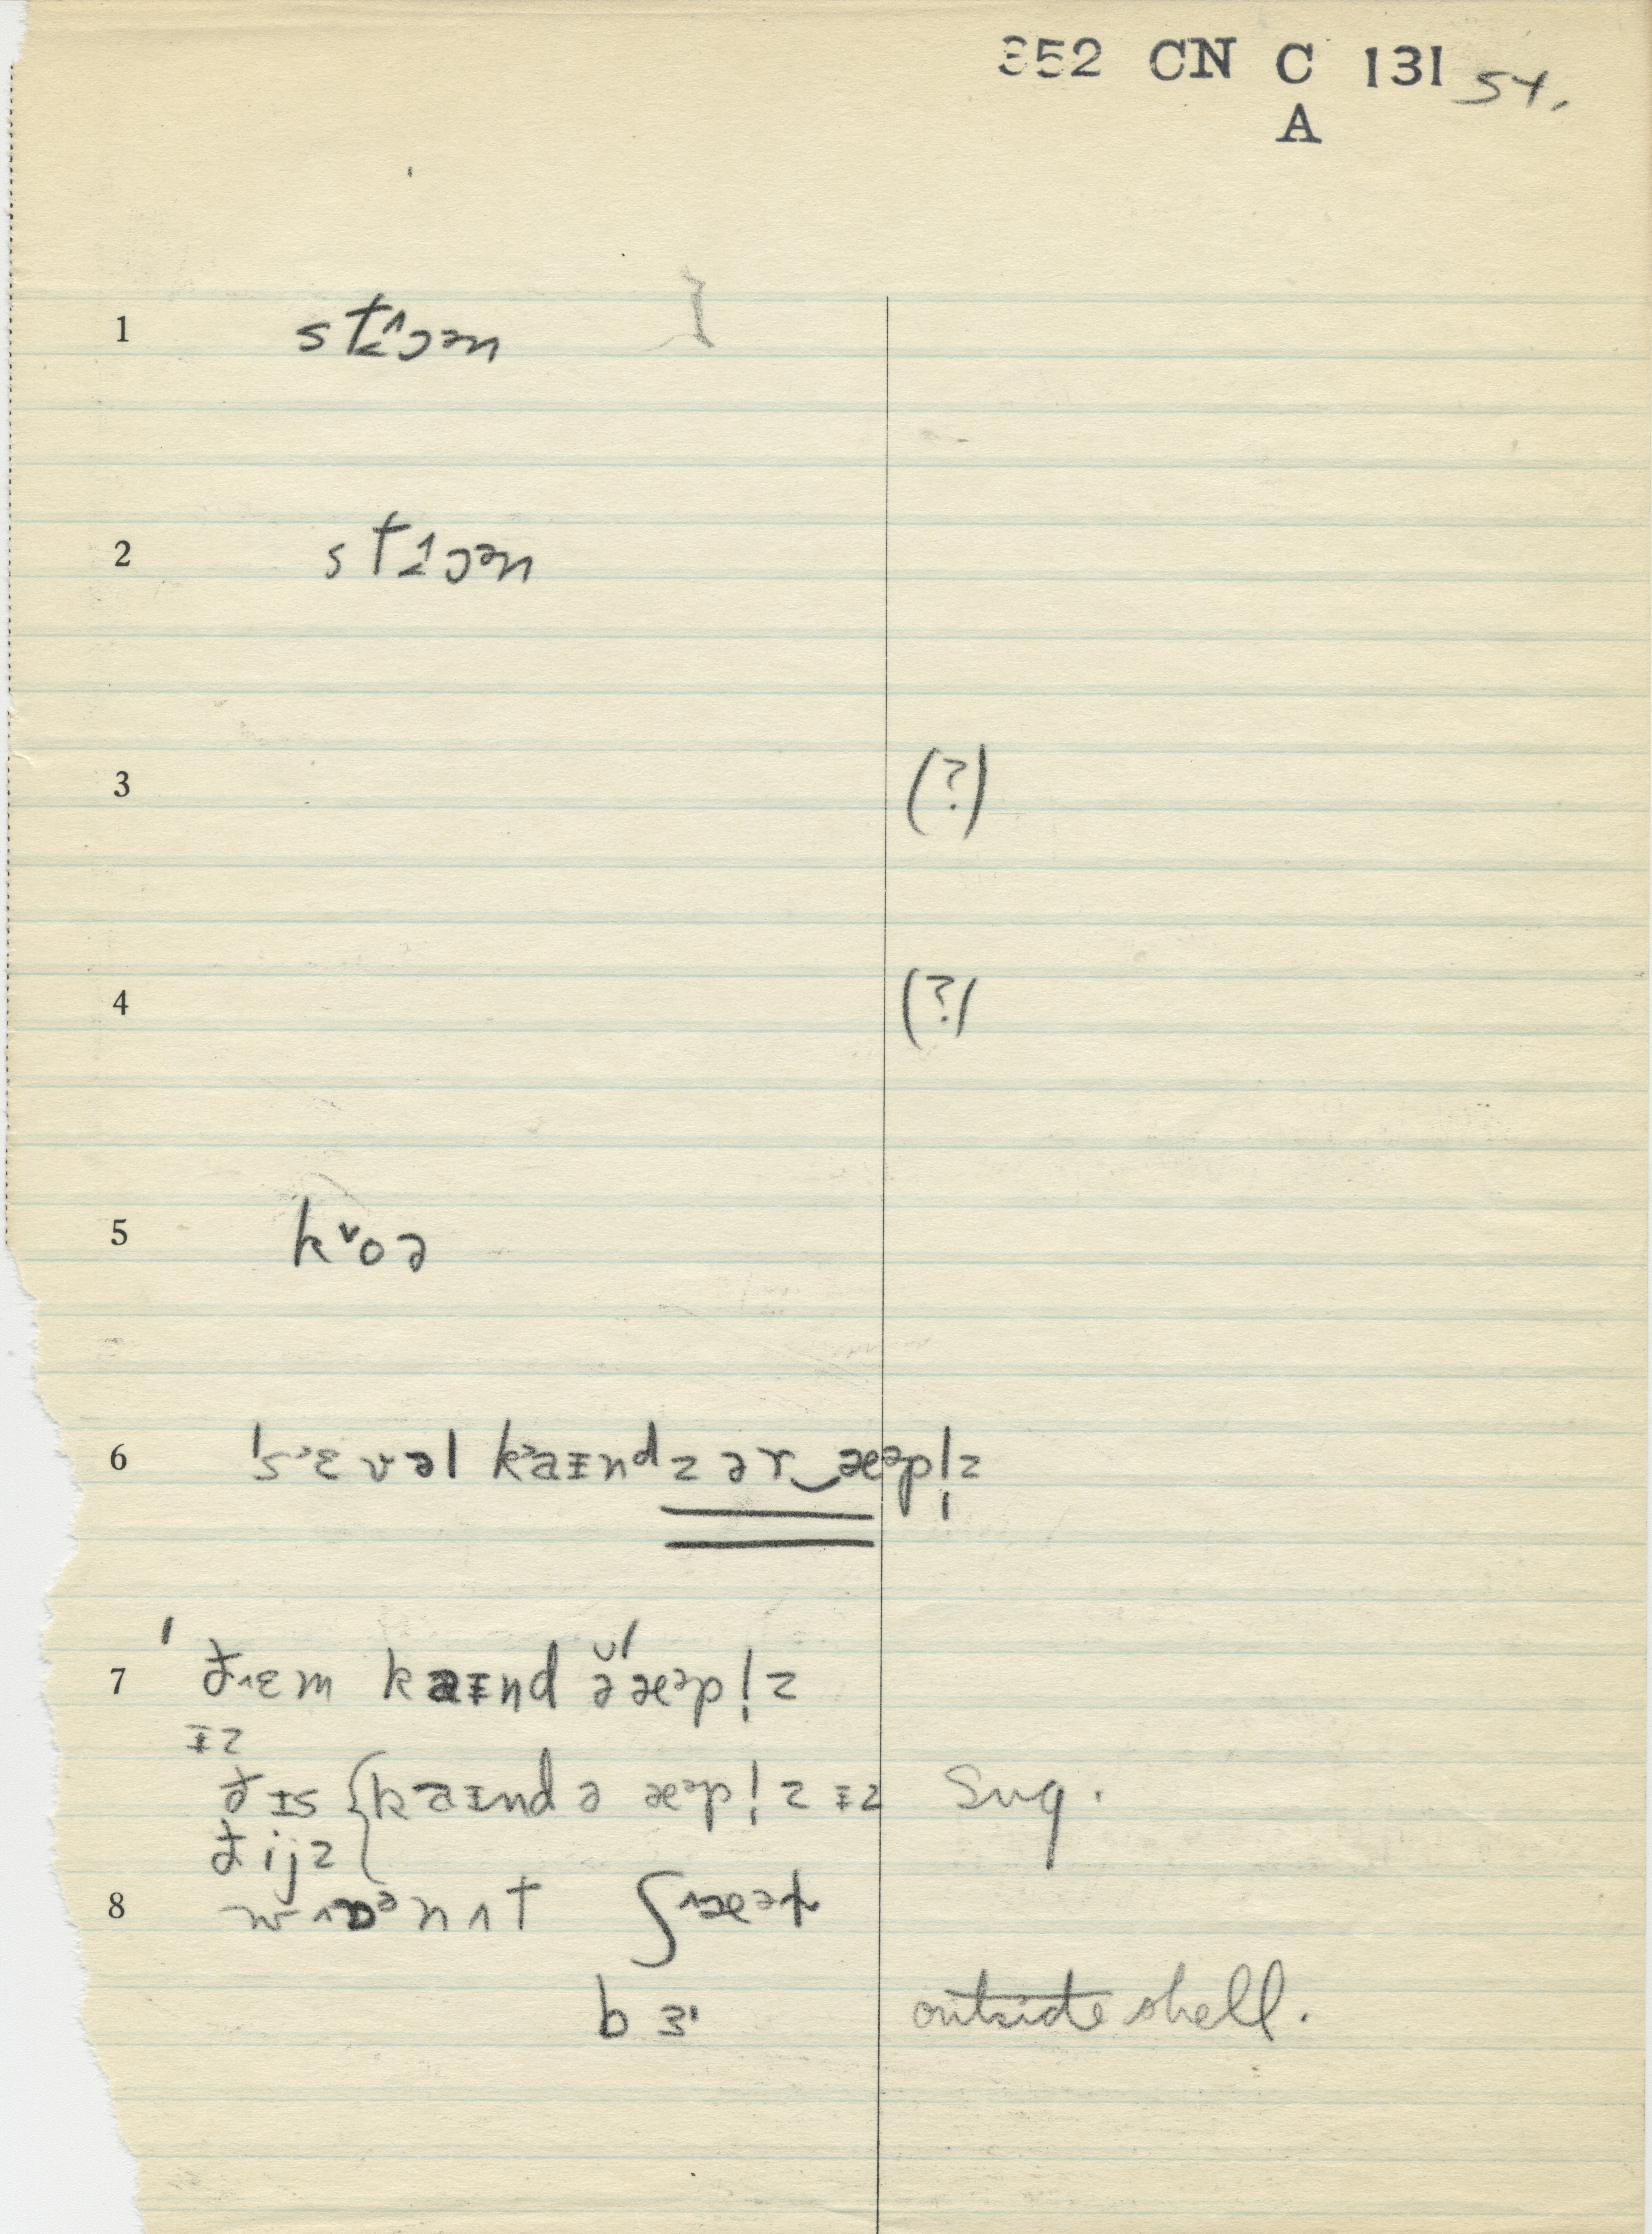 352 CN C 131 54.
A
1 st˂˄ɔən
2 st˂˄ɔən
3 (?)
4 (?)
5 k˅oə
6 ˈsɛ˃vəl ka˃ɪndz ər‿æᵊpl̩z
7 ˈð˄ɛm kaɪnd ə̆ˈæᵊpl̩z
ɪz
ðɪs { kaɪnd ə æᵊpl̩z ɪz sug.
ðijz
8 w˄ɒᵊn˄t ʃ˄æᵊ
bɜ' outside shell.